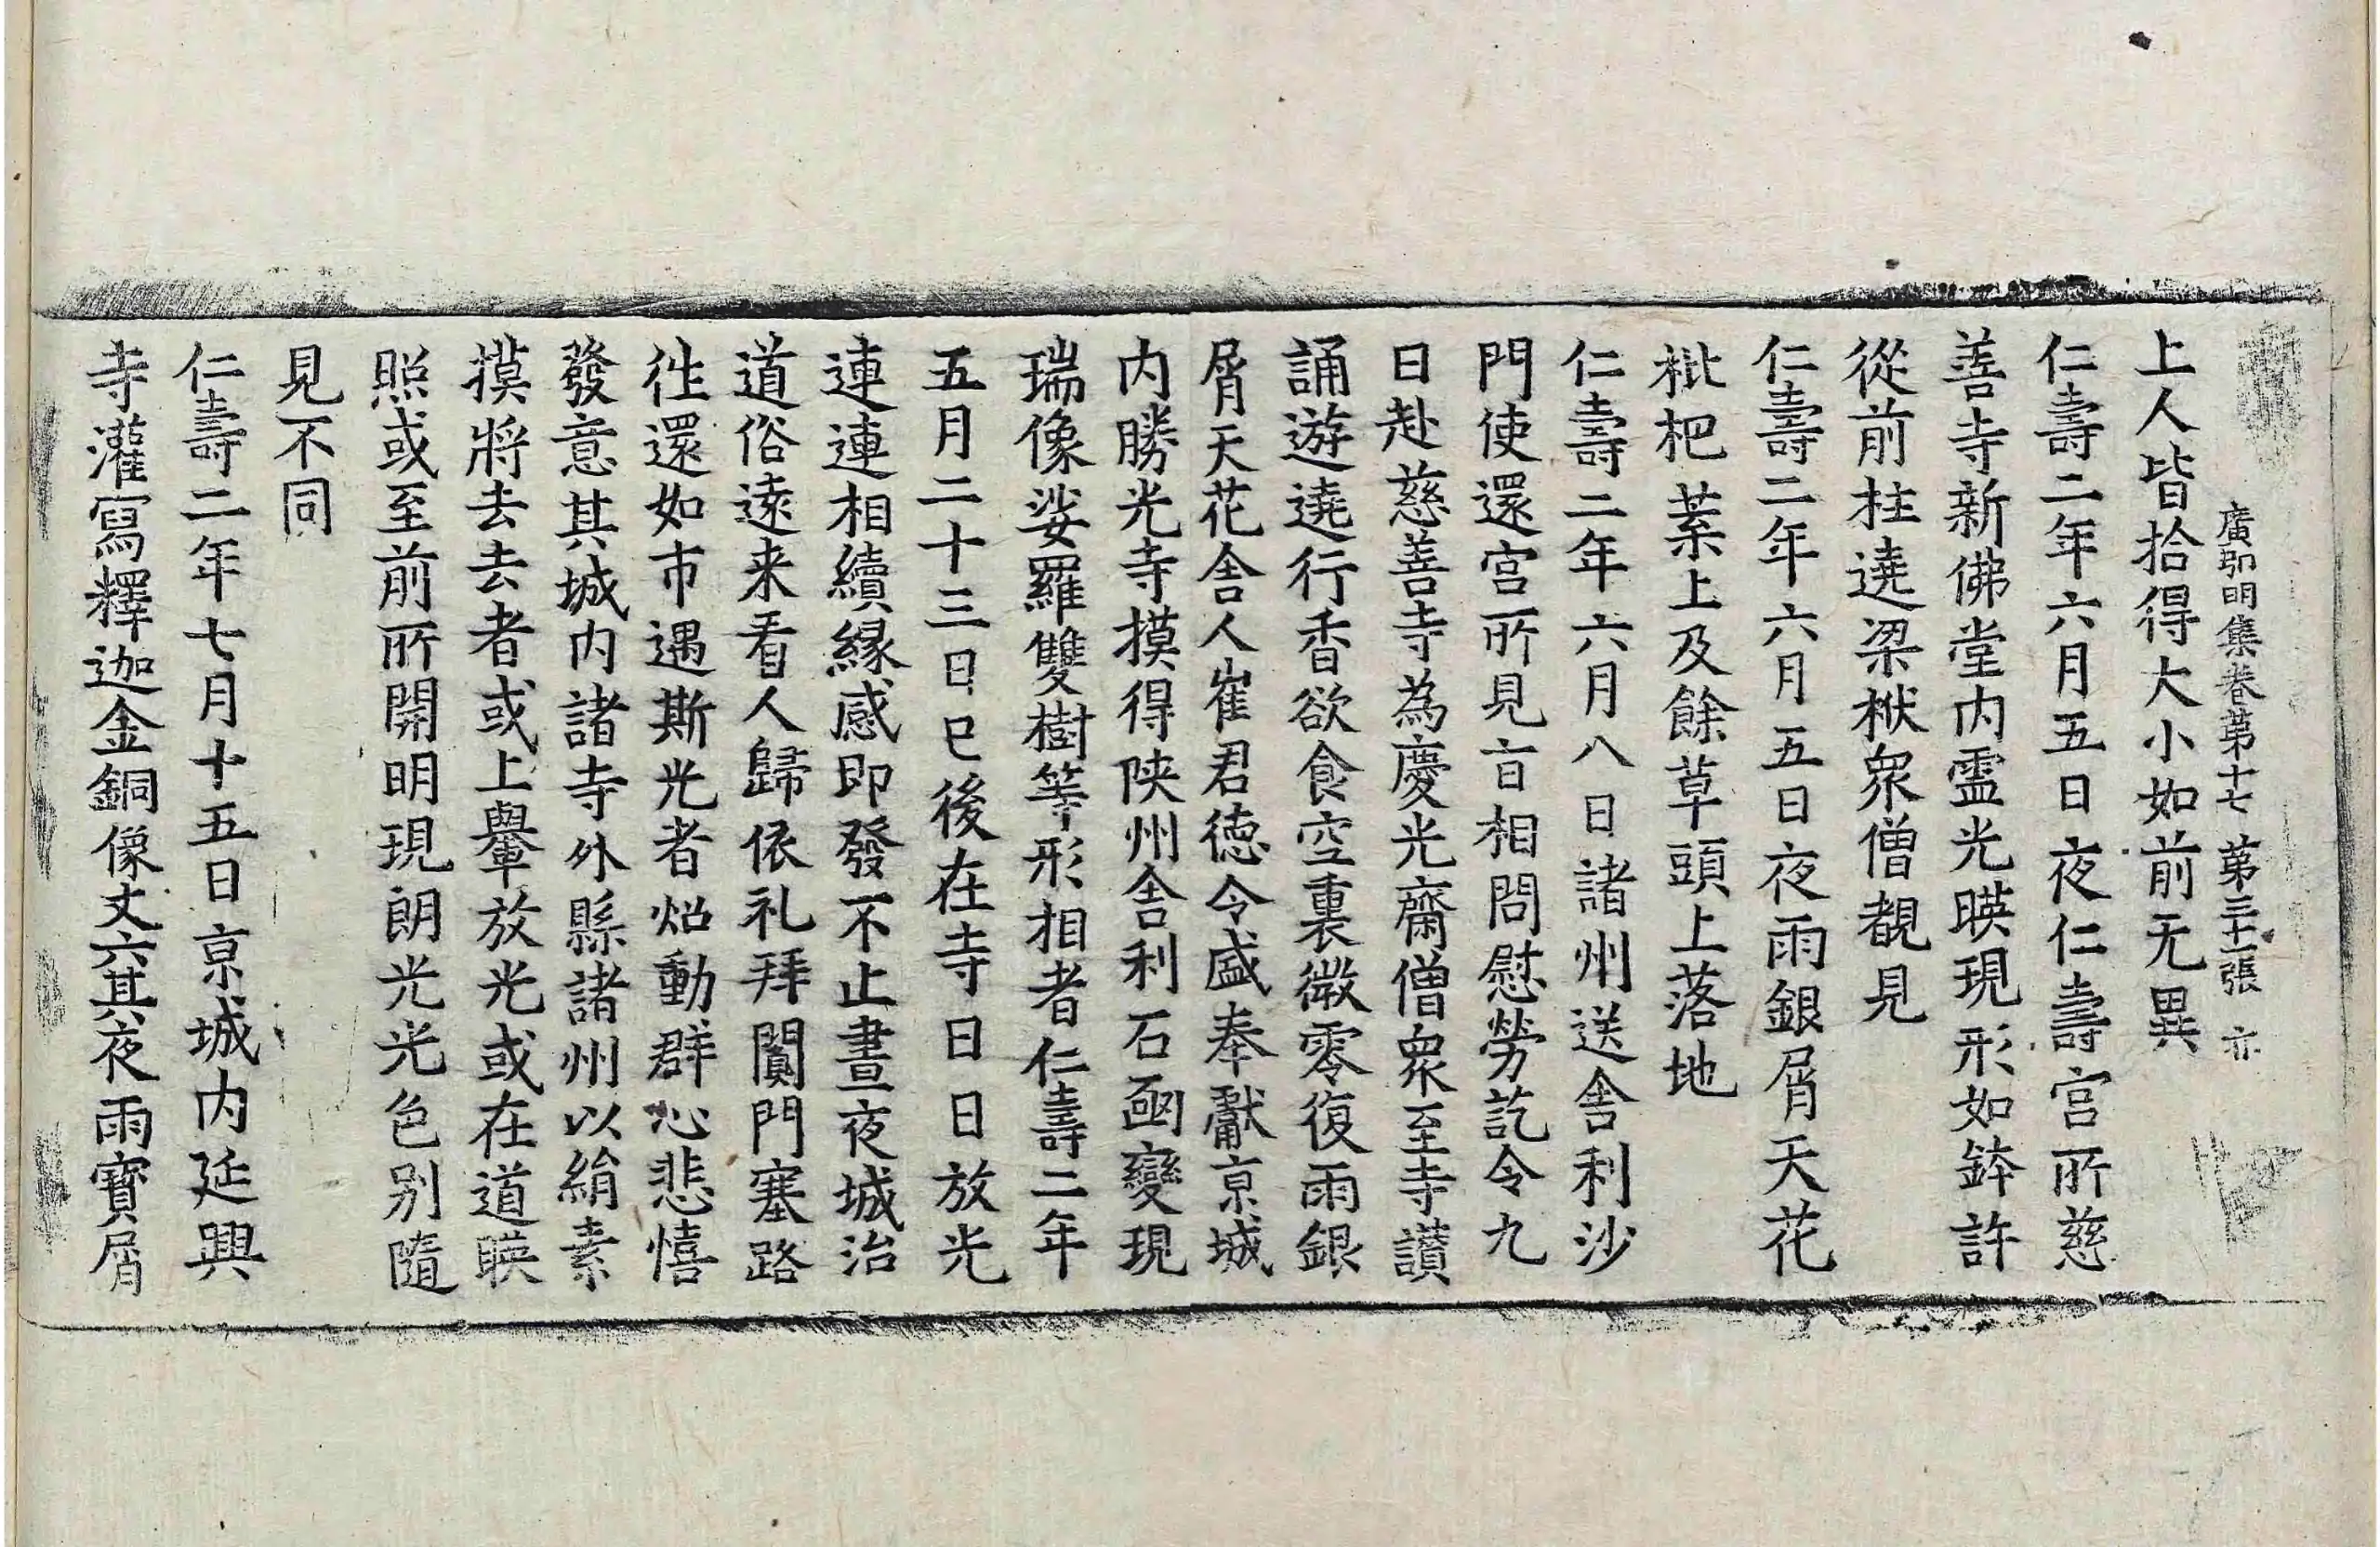 廣弘明集卷第十七 第三十二張 亦
上人皆拾得大小如前无異
仁壽二年六月五日夜仁壽宮所慈
善寺新佛堂内霊光暎現形如鉢許
從前柱遶梁栿衆僧覩見
仁壽二年六月五日夜雨銀屑天花
枇杷葉上及餘草頭上落地
仁壽二年六月八日諸州送舍利沙
門使還宮所見旨相問慰勞訖令九
日赴慈善寺為慶光齋僧衆至寺讃
誦遊遶行香欲食空裏微零復雨銀
屑天花舍人崔君徳令盛奉獻京城
内勝光寺摸得陝州舍利石函變現
瑞像娑羅雙樹等形相者仁壽二年
五月二十三日已後在寺日日放光
連連相續縁感即發不止晝夜城治
道俗逺来看人歸依礼拜闐門塞路
徃還如市遇斯光者炤動群心悲憘
發意其城内諸寺外縣諸州以絹素
摸將去去者或上轝放光或在道暎
照或至前所開明現朗光光色别隨
見不同
仁壽二年七月十五日京城内延興
寺灌寫釋迦金銅像丈六其夜雨寳屑